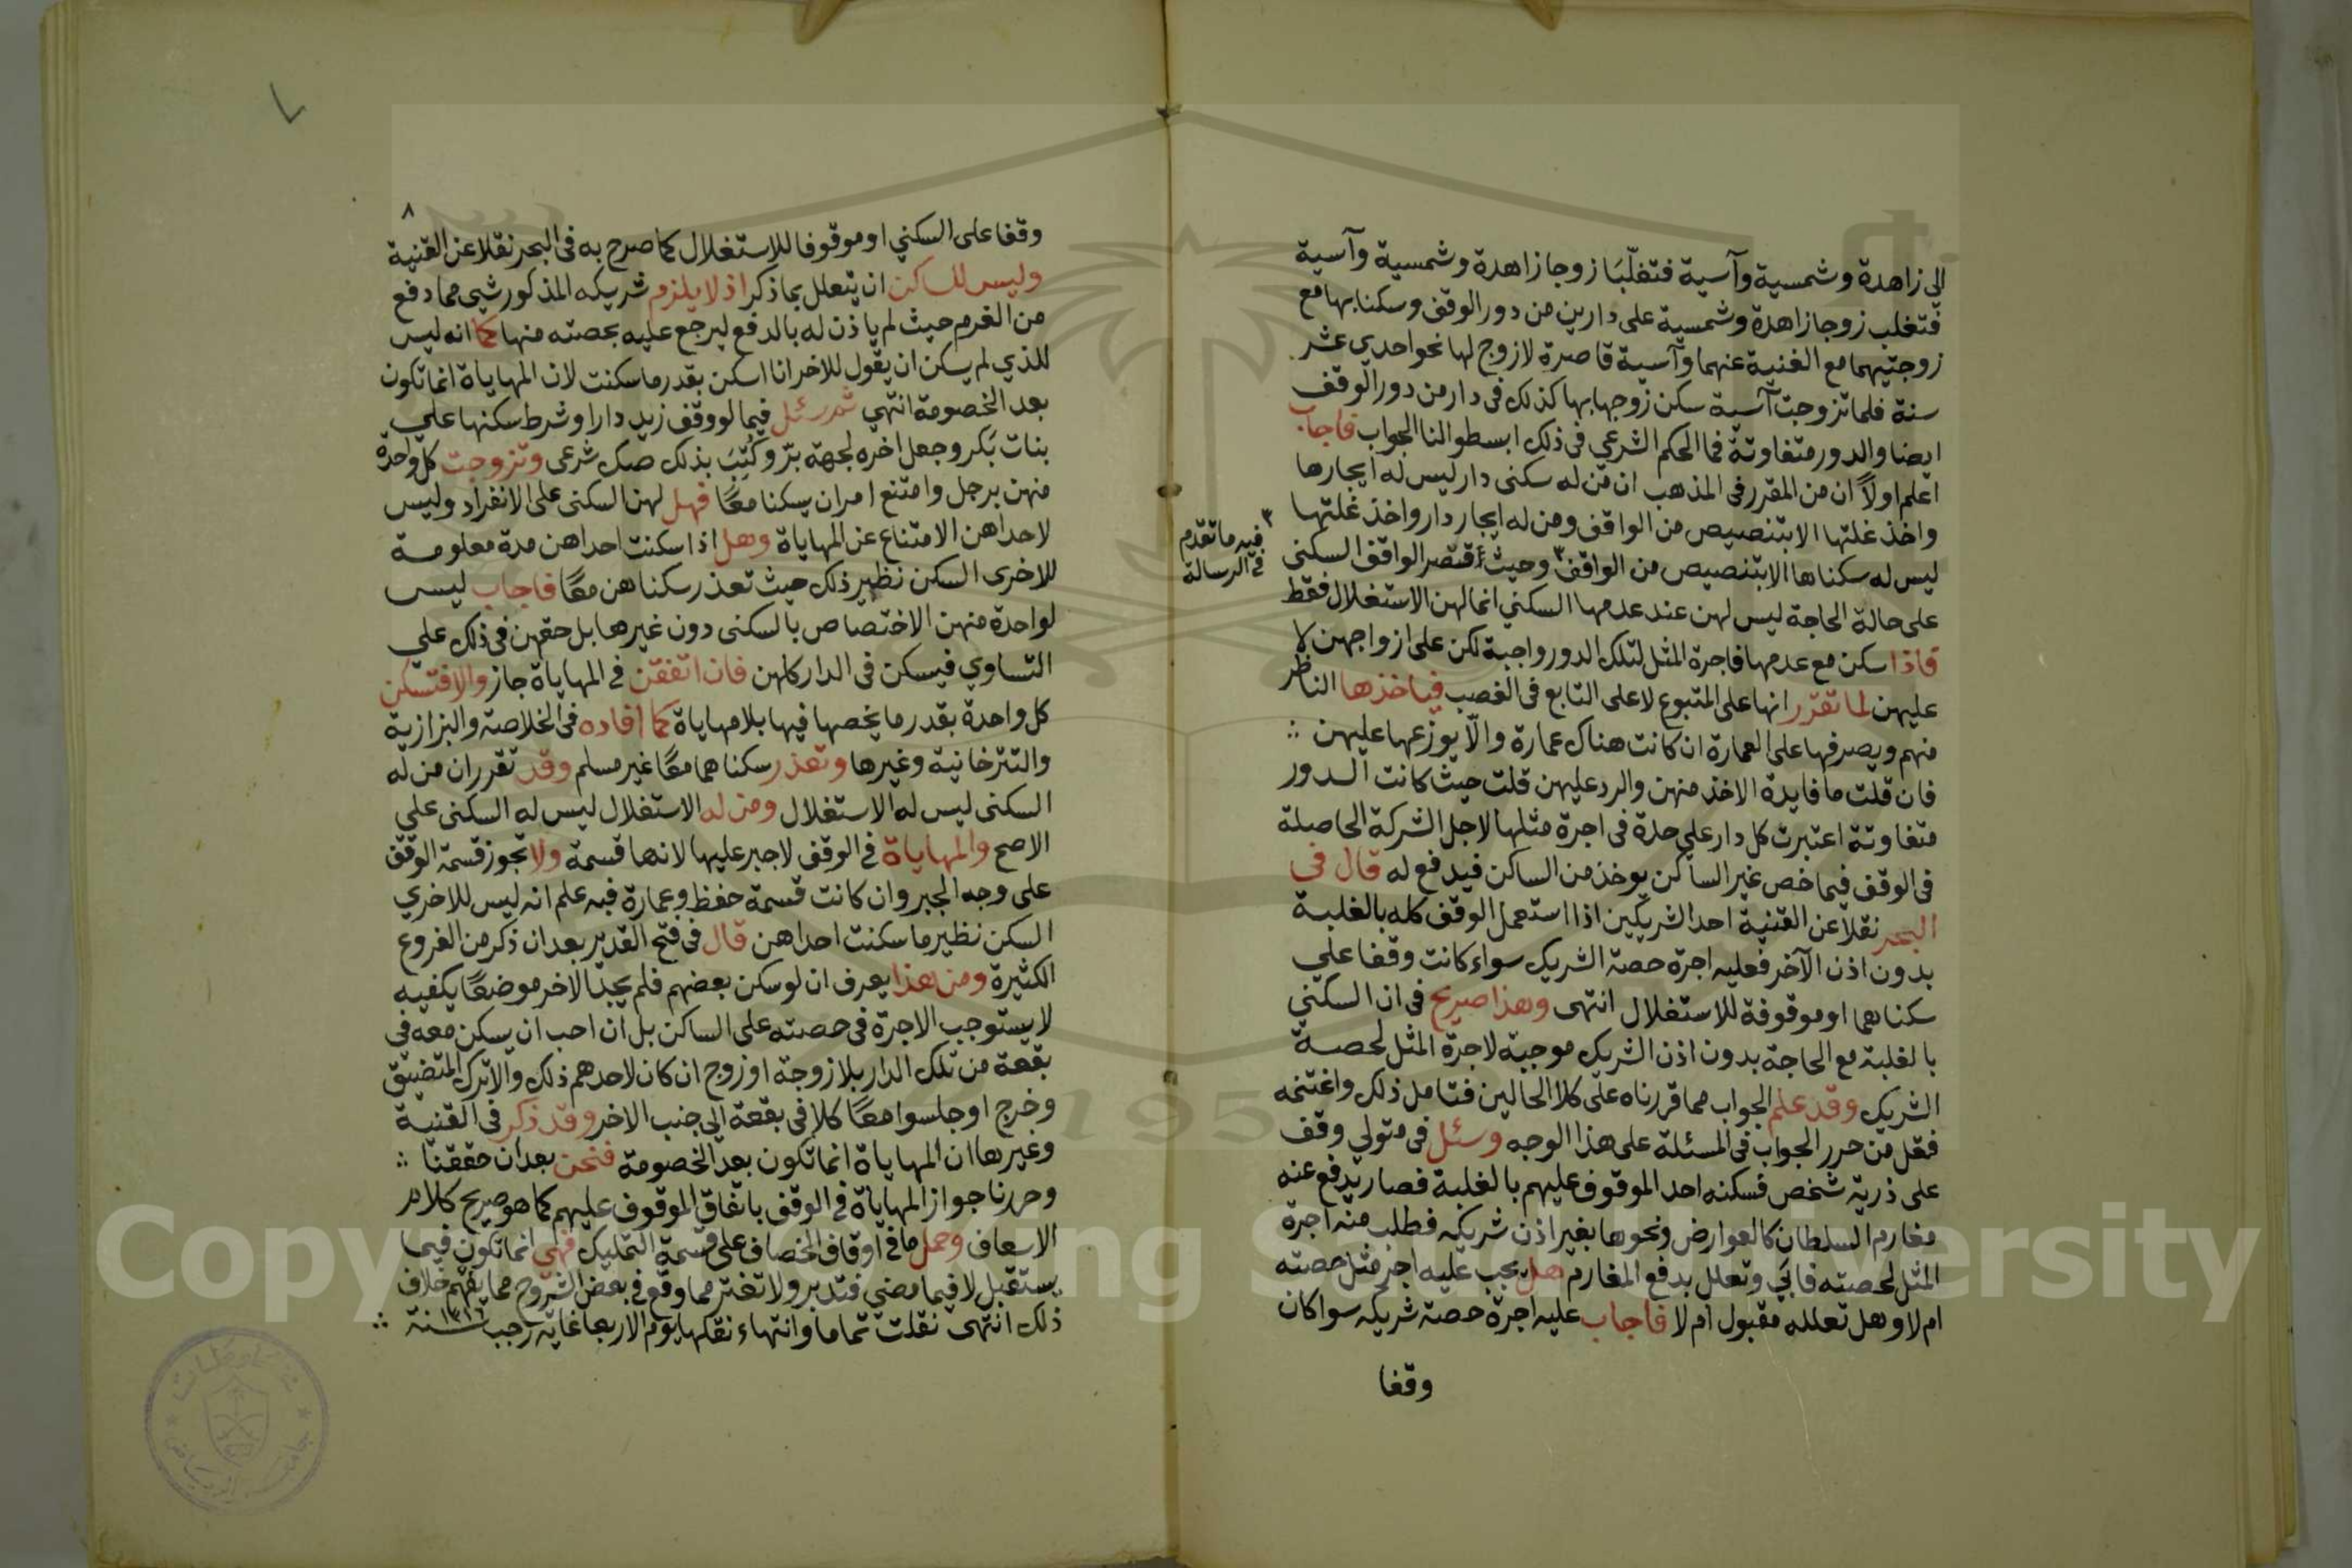 الى زاهدة وشمسية وآسية فتغلّبَا زوجا زاهدة وشمسية وآسية
فتغلب زوجا زاهدة وشمسية على دارين من دور الوقف وسكنا بها مع
زوجتيهما مع الغنية عنهما وآسية قاصرة لا زوج لها نحو احدي عشر
سنة فلما تزوجت آسية سكن زوجها بها كذلك في دار من دور الوقف
ايضا والدور متفاوتة فما الحكم الشرعي في ذلك ابسطوا لنا الجواب فاجاب
اعلم اولاً ان من المقرر في المذهب ان من له سكنى دار ليس له ايجارها
واخذ غلتها الا بتنصيص من الواقف ومن له ايجار دار واخذ غلتها
ليس له سكناها الا بتنصيص من الواقف٣ وحيث اقتصر الواقف السكنى
على حالة الحاجة ليس لهن عند عدمها السكني انما لهن الاستغلال فقط
فاذا سكن مع عدمها فاجرة المثل لتلك الدور واجبة لكن على ازواجهن لا
عليهن لما تقرّر انها على المتبوع لا على التابع في الغصب فياخذها الناظر
منهم ويصرفها على العمارة ان كانت هناك عمارة والّا يوزعها عليهن ∴
فان قلت ما فايدة الاخذ منهن والرد عليهن قلت حيث كانت الدور
متفاوتة اعتبرت كل دار على حدة في اجرة مثلها لاجل الشركة الحاصلة
في الوقف فيما خص غير الساكن يوخذ من الساكن فيدفع له قال في
البحر نقلا عن القنية احد الشريكين اذا استعمل الوقف كله بالغلبة
بدون اذن الآخر فعليه اجرة حصة الشريك سواء كانت وقفا علي
سكناهما او موقوفة للاستغلال انتهى وهذا صريح في ان السكني
بالغلبة مع الحاجة بدون اذن الشريك موجبة لاجرة المثل لحصة
الشريك وقد علم الجواب مما قررناه على كلا الحالين فتامل ذلك واغتنمه
فقل من حرر الجواب في المسئلة على هذا الوجه وسئل في متولي وقف
على ذرية شخص فسكنه احد الموقوف عليهم بالغلبة فصار يدفع عنه
مغارم السلطان كالعوارض ونحوها بغير اذن شريكه فطلب منه اجرة
المثل لحصته فابَي وتعلل بدفع المغارم هل يجب عليه اجر مثل حصته
ام لا وهل تعلله مقبول ام لا فاجاب عليه اجرة حصة شريكه سوا كان
وقفا
٣
فيه ما تقدم
في الرسالة
٨
وقفا على السكني او موقوفا للاستغلال كما صرح به في البحر نقلا عن القنية
وليس للساكن ان يتعلل بما ذكر اذ لا يلزم شريكه المذكور شي مما دفع
من الغرم حيث لم ياذن له بالدفع ليرجع عليه بحصته منها كما انه ليس
للذي لم يسكن ان يقول للاخر انا اسكن بقدر ما سكنت لان المهاياة انما تكون
بعد الخصومة انتهي ثم سئل فيما لو وقف زيد دارا وشرط سكنها علي
بنات بَكر وجعل اخره لجهة برّ وكُتِبَ بذلك صك شرعى وتزوجت كل واحدة
منهن برجل وامتنع امران يسكنا معًا فهل لهن السكنى على الانفراد وليس
لاحداهن الامتناع عن المهاياة وهل اذا سكنت احداهن مدة معلومة
للاخرى السكن نظير ذلك حيث تعذر سكناهن معًا فاجاب ليس
لواحدة منهن الاختصاص بالسكنى دون غيرها بل حقهن في ذلك علي
التساوي فيسكن في الدار كلهن فان اتفقن في المهاياة جاز والا فتسكن
كل واحدة بقدر ما يخصها فيها بلا مهاياة كما افاده في الخلاصة والبزازية
والتترخانية وغيرها وتعذر سكناهما معًا غير مسلم وقد تقرر ان من له
السكنى ليس له الاستغلال ومن له الاستغلال ليس له السكنى علي
الاصح والمهاياة في الوقف لا جبر عليها لانها قسمة ولا تجوز قسمة الوقف
على وجه الجبر وان كانت قسمة حفظ وعمارة فبه علم انه ليس للاخري
السكن نظير ما سكنت احداهن قال في فتح القدير بعد ان ذكر من الفروع
الكثيرة ومن هذا يعرف ان لو سكن بعضهم فلم يجد الاخر موضعًا يكفيه
لا يستوجب الاجرة في حصته على الساكن بل ان احب ان يسكن معه في
بقعة من تلك الدار بلا زوجة او زوج ان كان لاحدهم ذلك والا ترك المتضيق
وخرج او جلسوا معًا كلا في بقعة الى جنب الاخر وقد ذكر في القنية
وغيرها ان المهاياة انما تكون بعد الخصومة فنحن بعد ان حققنا ∴
وحررنا جواز المهاياة في الوقف باتفاق الموقوف عليهم كما هو صريح كلام
الاسعاف وحمل ما في اوقاف الخصاف على قسمة التمليك فهي انما تكون فيما
يستقبل لا فيما مضي فتدبر ولا تغتر مما وقع في بعض الشروح مما يفهم خلاف
ذلك انتهى نقلت تماما وانتهاء نقلها يوم الاربعا غاية رجب سنة ∴
Copyright © King Saud University
1957